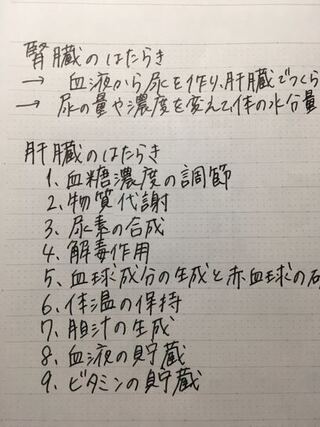 腎臓のはたらき
→ 血液から尿を作り、肝臓でつくら
→ 尿の量や濃度を変えて、体の水分量
肝臓のはたらき
1、血糖濃度の調節
2、物質代謝
3、尿素の合成
4、解毒作用
5、血球成分の生成と赤血球の
6、体温の保持
7、胆汁の生成
8、血液の貯蔵
9、ビタミンの貯蔵